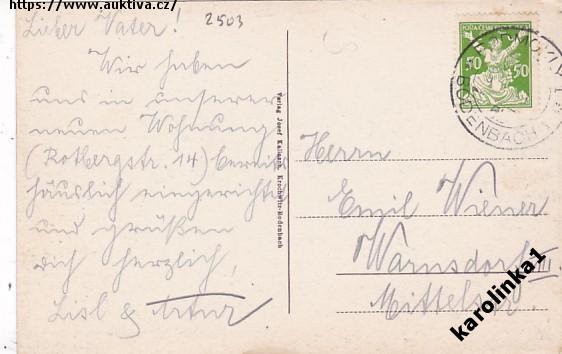 https://www.auktiva.cz/
Lieber Vater!
2503
Wir haben
uns in unserer
neuen Wohnung
(Rotbergstr. 14) bereits
häuslich eingerichtet
und grüßen
dich herzlich,
Lisl & Artur
Verlag Josef Krochwitz-Bodenbach
POŠTA ČESKO
50 50
PODMOKLY
BODENBACH
Herrn
Emil Wiener
Warnsdorf III
karolinka1